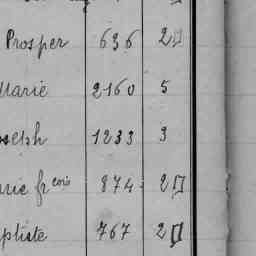 Prosper 636 2
Marie 2160 5
Joseph 1233 3
Marie fr^çois 874 2
aptiste 767 2